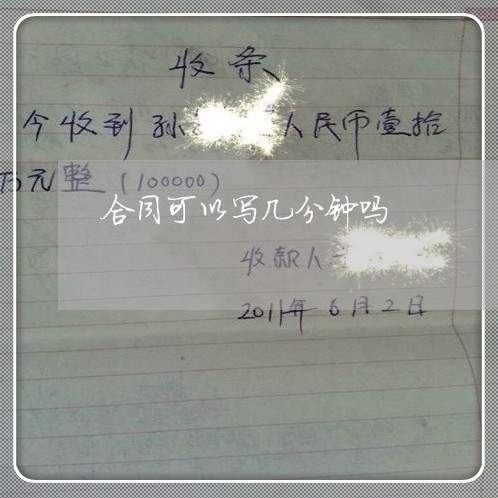 收条
今收到孙 人民币壹拾
万元整(100000)
合同可以写几分钟吗
收款人
2011年6月2日